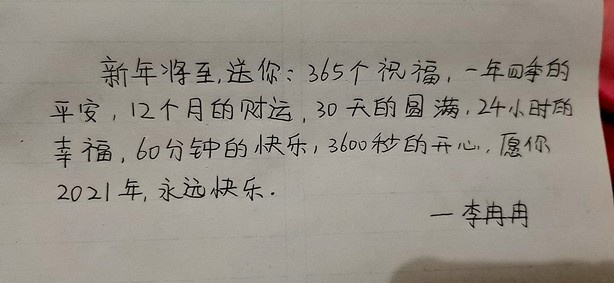 新年将至,送你:365个祝福,一年四季的
平安,12个月的财运,30天的圆满,24小时的
幸福,60分钟的快乐,3600秒的开心,愿你
2021年,永远快乐.
—李冉冉